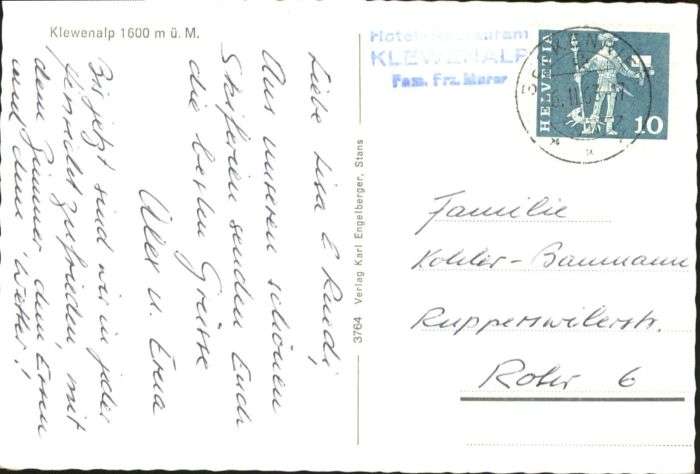 Klewenalp 1600 m ü. M.
Liebe Lisa & Ruedi,
Aus unseren schönen
Skiferien senden Euch
die besten Grüsse
Alex u. Erna
Bis jetzt sind wir in jeder
Hinsicht zufrieden, mit
dem Zimmer, dem Essen
und dem Wetter!
3764 Verlag Karl Engelberger, Stans
Hotel Restaurant
KLEWENALP
Fam. Frz. Murer
HELVETIA
10
Familie
Kohler-Baumann
Rupperswilerstr.
Rohr 6